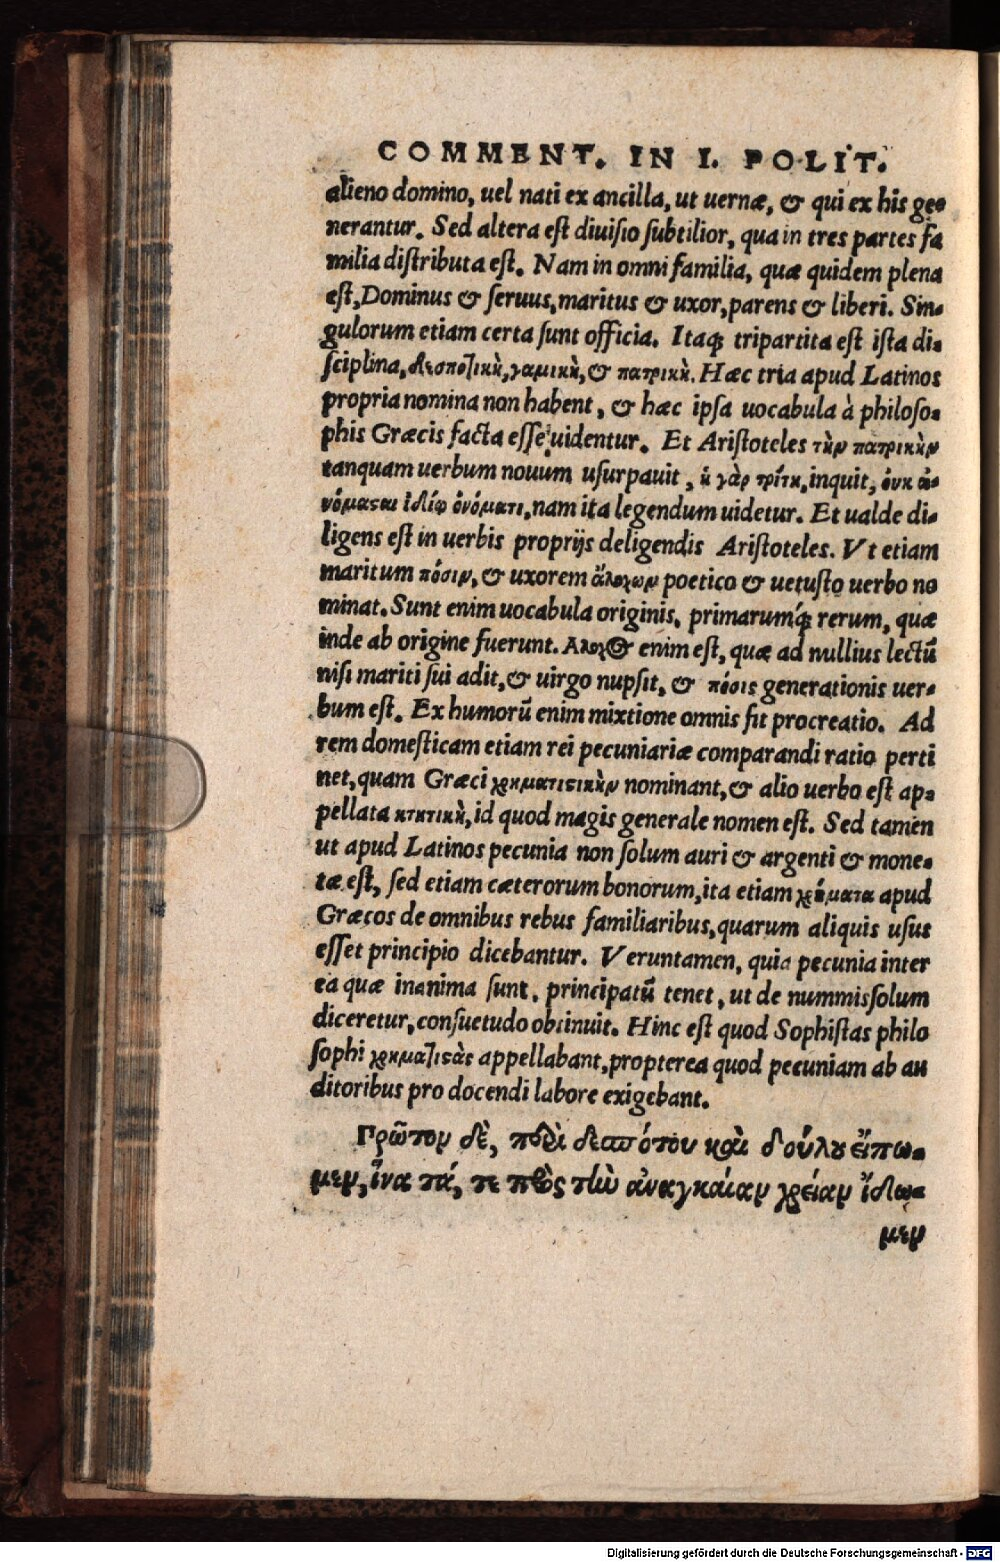 COMMENT. IN I. POLIT.
alieno domino, uel nati ex ancilla, ut uernæ, & qui ex his ge-
nerantur. Sed altera eſt diuiſio ſubtilior, qua in tres partes fa
milia diſtributa eſt. Nam in omni familia, quæ quidem plena
eſt, Dominus & ſeruus, maritus & uxor, parens & liberi. Sin-
gulorum etiam certa ſunt officia. Itaq; tripartita eſt iſta di-
ſciplina, δεσποτικὴ, γαμικὴ, & πατρικὴ. Hæc tria apud Latinos
propria nomina non habent, & hæc ipſa uocabula à philoſo-
phis Græcis facta eſſe uidentur. Et Ariſtoteles τὴν πατρικὴν
tanquam uerbum nouum uſurpauit, ἡ γὰρ τρίτη, inquit, ὀυκ ὠ-
νόμασαι ἰδίῳ ὀνόματι, nam ita legendum uidetur. Et ualde di-
ligens eſt in uerbis proprijs deligendis Ariſtoteles. Vt etiam
maritum πόσιν, & uxorem ἄλοχον poetico & uetuſto uerbo no
minat. Sunt enim uocabula originis, primarumq́; rerum, quæ
inde ab origine fuerunt. Αλοχος enim eſt, quæ ad nullius lectū
niſi mariti ſui adit, & uirgo nupſit, & πόσις generationis uer-
bum eſt. Ex humorū enim mixtione omnis fit procreatio. Ad
rem domeſticam etiam rei pecuniariæ comparandi ratio perti
net, quam Græci χρηματιστικὴν nominant, & alio uerbo eſt ap-
pellata κτητικὴ, id quod magis generale nomen eſt. Sed tamen
ut apud Latinos pecunia non ſolum auri & argenti & mone-
tæ eſt, ſed etiam cæterorum bonorum, ita etiam χρήματα apud
Græcos de omnibus rebus familiaribus, quarum aliquis uſus
eſſet principio dicebantur. Veruntamen, quia pecunia inter
ea quæ inanima ſunt, principatū tenet, ut de nummis ſolum
diceretur, conſuetudo obtinuit. Hinc eſt quod Sophiſtas philo
ſophi χρηματιστὰς appellabant, propterea quod pecuniam ab au
ditoribus pro docendi labore exigebant.
Πρῶτον δὲ, περὶ δεσπότου καὶ δούλου ἔιπω-
μεν, ἵνα τά, τε πρὸς τὴν ἀναγκάιαν χρείαν ἴδω-
μεν
Digitalisierung gefördert durch die Deutsche Forschungsgemeinschaft - DFG